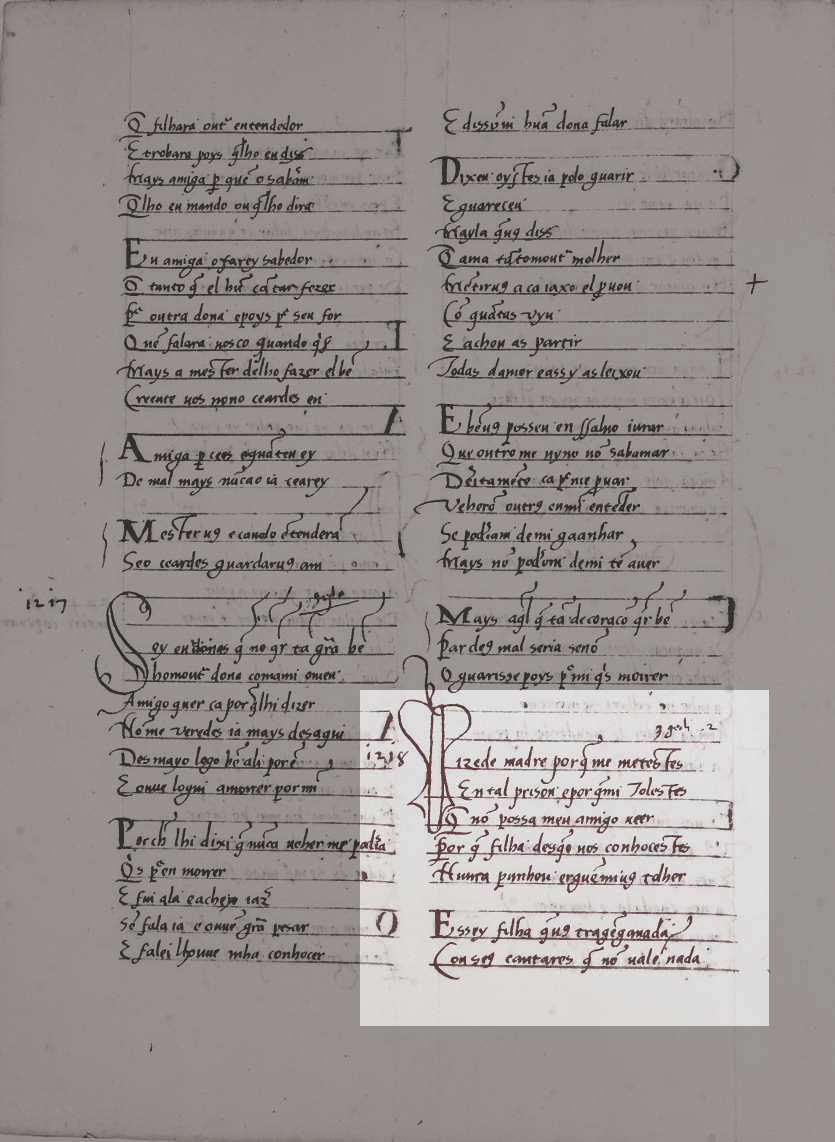 Q̃ filhara outº entendedor
E trobara poys q̃lho eu diss
Mays amiga ꝑ que o sabam
Q̃lho eu mando ou q̃lho dira
Eu amiga o farey sabedor
Q̃ tanto q̃ el huũ cãtar fezer
Pᵉ outra dona e poys pᵉ seu for
Q nõ falara uosco quando q̃s
Mays a mester delho fazer el bẽ
Creente uos nono ceardes en
Amiga ꝑ cees
De mal mays nũca o ia cearey
Mester uꝯ e cando ẽtendera
Seo ceardes guardaruꝯ am
1217
Sey eu donas q̃ nõ qr tã grã bẽ
homoutº dona comami omeu
Amigo quer ca porq̃lhi dizer
Nõme veredes ia mays desaqui
Desmayo logo bẽ ali porẽ
E ouue logui a morrer por mi
Porq̃ lhi dixi q̃ nũca ueher me
Q̃s pᵉ en morrer
E fui ala e acheyo iaz
Sẽ fala ia e ouuẽ grã pesar
E falei lhouue mha conhocer
E dissomi huã dona falar
Dixeu oystes ia polo guarir
E guareceu
Mayla q̃uꝯ diss
Cama tãtomoutº molher
Meteruꝯ
Cõ quãtas vyu
E achou as partir
Todas damor e assy as leixou
E bẽuꝯ posseu en ssaluo iurar
Que outrome uyuo nõ sabamar
Dereitamẽte ca pᵉme prouar
Veherõ outrꝯ enmi entẽder
Se podiam de mi gaanhar
Mays nõ poderom de mi tẽ auer
Mays aql q̃ tã de coraço qr bẽ
Par deꝯ mal seria senõ
O guarisse poys pᵉ mi q̃s morrer
1218
Dizede madre porq̃ me metestes
En tal prison e porq̃mi tolestes
Q̃ nõ possa meu amigo ueer
Por q̃ filha desq̃o uos conhocestes
Nunca punhou ergu ẽmiuꝯ tolher
E ssey filha q̃uꝯ trag ẽganada
Con seꝯ cantares q̃ nõ ualẽ nada